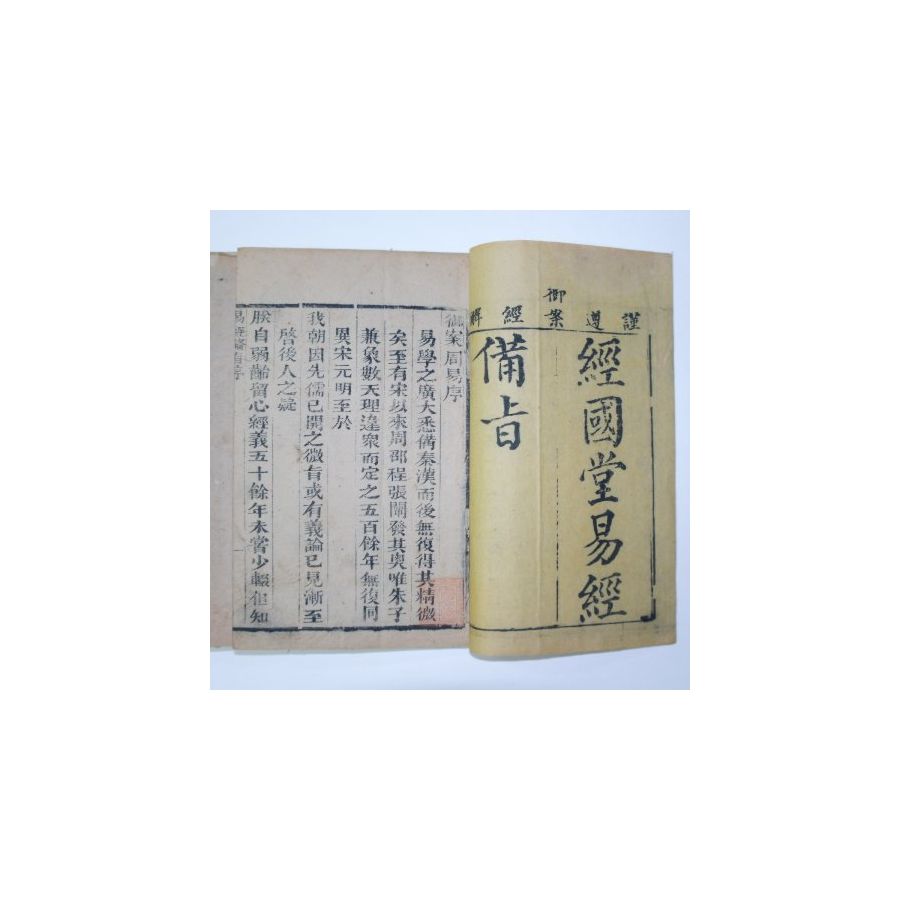 謹遵
御案
經解
經國堂易經
備旨
御案周易序
易學之廣大悉備秦漢而後無復得其精微
矣至有宋以來周邵程張闡發其奧唯朱子
兼象數天理違衆而定之五百餘年無復同
異宋元明至於
我朝因先儒已開之微旨或有議論已見漸至
啓後人之疑
朕自弱齡留心經義五十餘年未嘗少輟但知